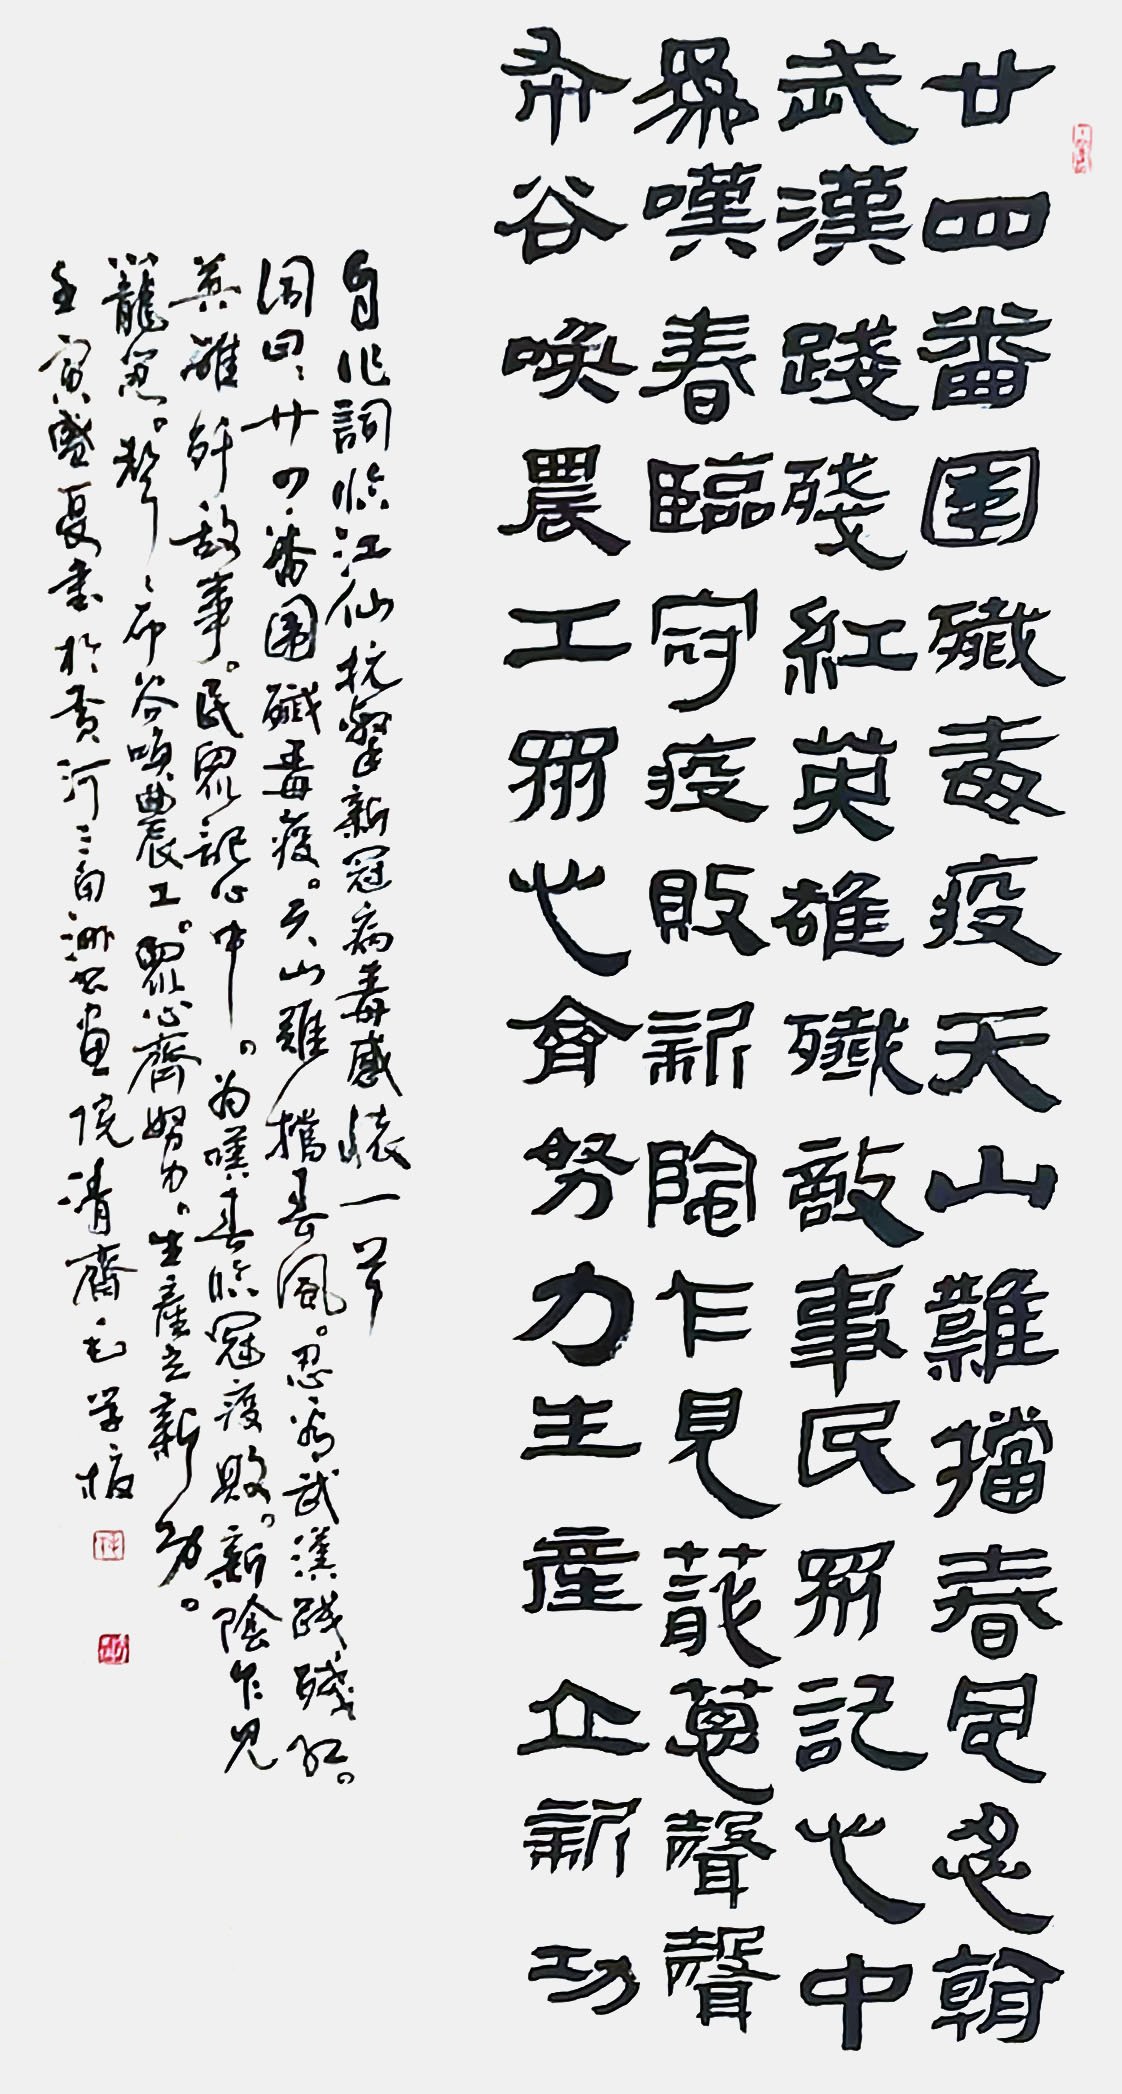 廿四番圍殲毒疫天山難擋春風忍看
武漢踐殘紅英雄殲敵事民眾記心中
為嘆春臨冠疫敗新陰乍見蘢蔥聲聲
布谷喚農工眾心齊努力生產立新功
自作詞臨江仙抗擊新冠病毒感懷一首
詞曰：廿四番圍殲毒疫。天山難擋春風。忍看武漢踐殘紅。
英雄殲敵事。民眾記心中。為嘆春臨冠疫敗。新陰乍見
蘢蔥。聲聲布谷喚農工。眾心齊努力。生產立新功。
壬寅盛夏書於黃河三角洲書畫院清齋毛學